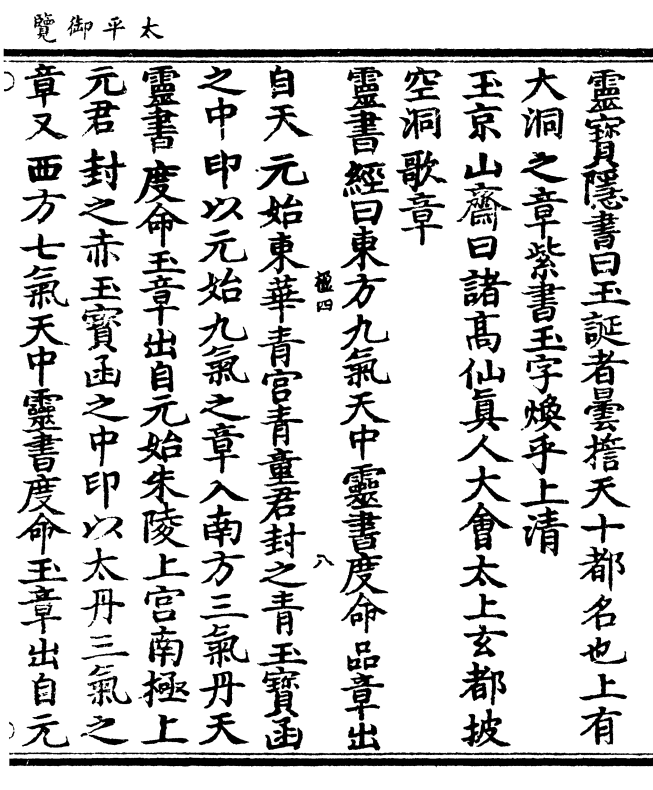 太平御覽
靈寶隱書曰玉誕者曇擔天十都名也上有
大洞之章紫書玉字煥乎上清
玉京山齋曰諸髙仙眞人大會太上玄都披
空洞歌章
靈書經曰東方九氣天中靈書度命品章出
自天元始東華青宮青童君封之青玉寶函
之中印以元始九氣之章入南方三氣丹天
靈書度命玉章出自元始朱陵上宮南極上
元君封之赤玉寶函之中印以太丹三氣之
章又西方七氣天中靈書度命玉章出自元
四
八